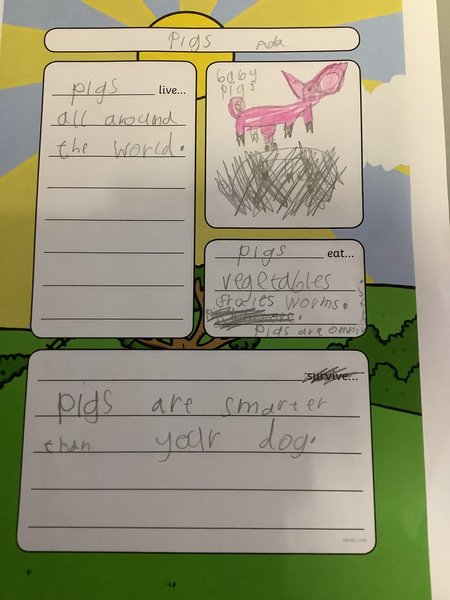 pigs Ada
pigs live...
all around
the world.
baby
pigs
pigs eat...
vegetables.
worms.
pigs are omni
survive...
pigs are smarter
than your dog.